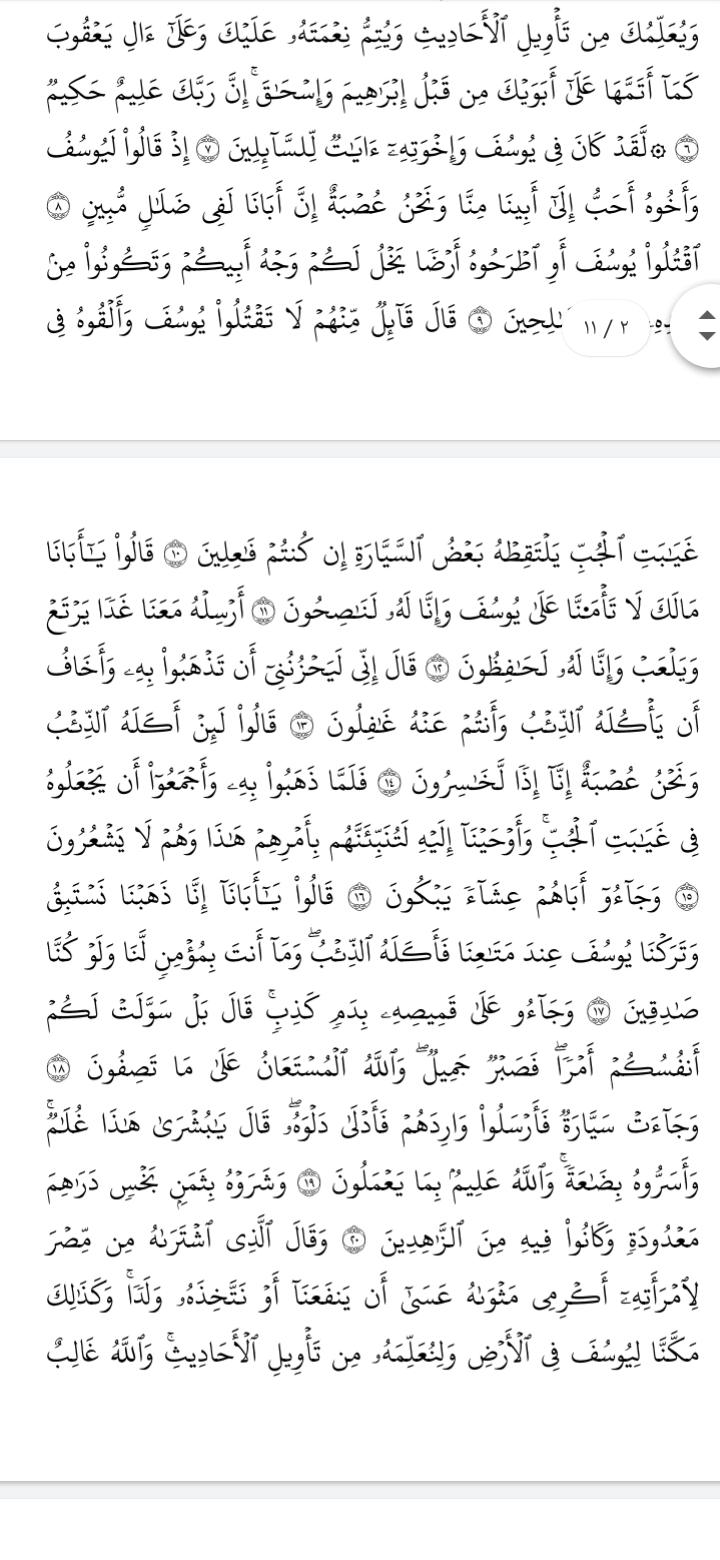 وَيُعَلِّمُكَ مِن تَأۡوِيلِ ٱلۡأَحَادِيثِ وَيُتِمُّ نِعۡمَتَهُۥ عَلَيۡكَ وَعَلَىٰٓ ءَالِ يَعۡقُوبَ
كَمَآ أَتَمَّهَا عَلَىٰٓ أَبَوَيۡكَ مِن قَبۡلُ إِبۡرَٰهِيمَ وَإِسۡحَٰقَۚ إِنَّ رَبَّكَ عَلِيمٌ حَكِيمٞ
٦ ۞لَّقَدۡ كَانَ فِي يُوسُفَ وَإِخۡوَتِهِۦٓ ءَايَٰتٞ لِّلسَّآئِلِينَ ٧ إِذۡ قَالُواْ لَيُوسُفُ
وَأَخُوهُ أَحَبُّ إِلَىٰٓ أَبِينَا مِنَّا وَنَحۡنُ عُصۡبَةٌ إِنَّ أَبَانَا لَفِي ضَلَٰلٖ مُّبِينٍ ٨
ٱقۡتُلُواْ يُوسُفَ أَوِ ٱطۡرَحُوهُ أَرۡضٗا يَخۡلُ لَكُمۡ وَجۡهُ أَبِيكُمۡ وَتَكُونُواْ مِنۢ
٩ قَالَ قَآئِلٞ مِّنۡهُمۡ لَا تَقۡتُلُواْ يُوسُفَ وَأَلۡقُوهُ فِي
٢ / ١١
غَيَٰبَتِ ٱلۡجُبِّ يَلۡتَقِطۡهُ بَعۡضُ ٱلسَّيَّارَةِ إِن كُنتُمۡ فَٰعِلِينَ ١٠ قَالُواْ يَٰٓأَبَانَا
مَالَكَ لَا تَأۡمَ۬نَّا عَلَىٰ يُوسُفَ وَإِنَّا لَهُۥ لَنَٰصِحُونَ ١١ أَرۡسِلۡهُ مَعَنَا غَدٗا يَرۡتَعۡ
وَيَلۡعَبۡ وَإِنَّا لَهُۥ لَحَٰفِظُونَ ١٢ قَالَ إِنِّي لَيَحۡزُنُنِيٓ أَن تَذۡهَبُواْ بِهِۦ وَأَخَافُ
أَن يَأۡكُلَهُ ٱلذِّئۡبُ وَأَنتُمۡ عَنۡهُ غَٰفِلُونَ ١٣ قَالُواْ لَئِنۡ أَكَلَهُ ٱلذِّئۡبُ
وَنَحۡنُ عُصۡبَةٌ إِنَّآ إِذٗا لَّخَٰسِرُونَ ١٤ فَلَمَّا ذَهَبُواْ بِهِۦ وَأَجۡمَعُوٓاْ أَن يَجۡعَلُوهُ
فِي غَيَٰبَتِ ٱلۡجُبِّۚ وَأَوۡحَيۡنَآ إِلَيۡهِ لَتُنَبِّئَنَّهُم بِأَمۡرِهِمۡ هَٰذَا وَهُمۡ لَا يَشۡعُرُونَ
١٥ وَجَآءُوٓ أَبَاهُمۡ عِشَآءٗ يَبۡكُونَ ١٦ قَالُواْ يَٰٓأَبَانَآ إِنَّا ذَهَبۡنَا نَسۡتَبِقُ
وَتَرَكۡنَا يُوسُفَ عِندَ مَتَٰعِنَا فَأَكَلَهُ ٱلذِّئۡبُۖ وَمَآ أَنتَ بِمُؤۡمِنٖ لَّنَا وَلَوۡ كُنَّا
صَٰدِقِينَ ١٧ وَجَآءُو عَلَىٰ قَمِيصِهِۦ بِدَمٖ كَذِبٖۚ قَالَ بَلۡ سَوَّلَتۡ لَكُمۡ
أَنفُسُكُمۡ أَمۡرٗاۖ فَصَبۡرٞ جَمِيلٞۖ وَٱللَّهُ ٱلۡمُسۡتَعَانُ عَلَىٰ مَا تَصِفُونَ ١٨
وَجَآءَتۡ سَيَّارَةٞ فَأَرۡسَلُواْ وَارِدَهُمۡ فَأَدۡلَىٰ دَلۡوَهُۥۖ قَالَ يَٰبُشۡرَىٰ هَٰذَا غُلَٰمٞۚ
وَأَسَرُّوهُ بِضَٰعَةٗۚ وَٱللَّهُ عَلِيمُۢ بِمَا يَعۡمَلُونَ ١٩ وَشَرَوۡهُ بِثَمَنِۭ بَخۡسٖ دَرَٰهِمَ
مَعۡدُودَةٖ وَكَانُواْ فِيهِ مِنَ ٱلزَّٰهِدِينَ ٢٠ وَقَالَ ٱلَّذِي ٱشۡتَرَىٰهُ مِن مِّصۡرَ
لِٱمۡرَأَتِهِۦٓ أَكۡرِمِي مَثۡوَىٰهُ عَسَىٰٓ أَن يَنفَعَنَآ أَوۡ نَتَّخِذَهُۥ وَلَدٗاۚ وَكَذَٰلِكَ
مَكَّنَّا لِيُوسُفَ فِي ٱلۡأَرۡضِ وَلِنُعَلِّمَهُۥ مِن تَأۡوِيلِ ٱلۡأَحَادِيثِۚ وَٱللَّهُ غَالِبٌ